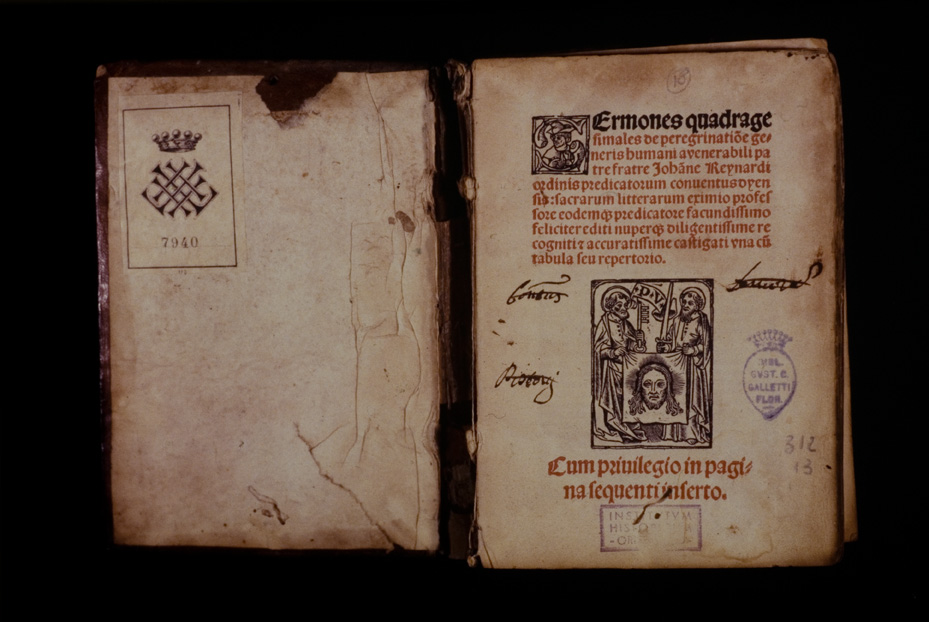 7940
18
SErmones quadrage
simales de peregrinatiõe ge⸗
neris humani a venerabili pa
tre fratre Johãne Reynardi
ordinis predicatorum conuentus dyen
sis: sacrarum litterarum eximio profes
sore eodemqꝫ predicatore facundissimo
feliciter editi nuperqꝫ diligentissime re
cogniti ⁊ accuratissime castigati vna cũ
tabula seu repertorio.
D.V.
BIBL.
GVST. C.
GALLETTI
FLOR.
312
13
Cum priuilegio in pagi⸗
na sequenti inserto.